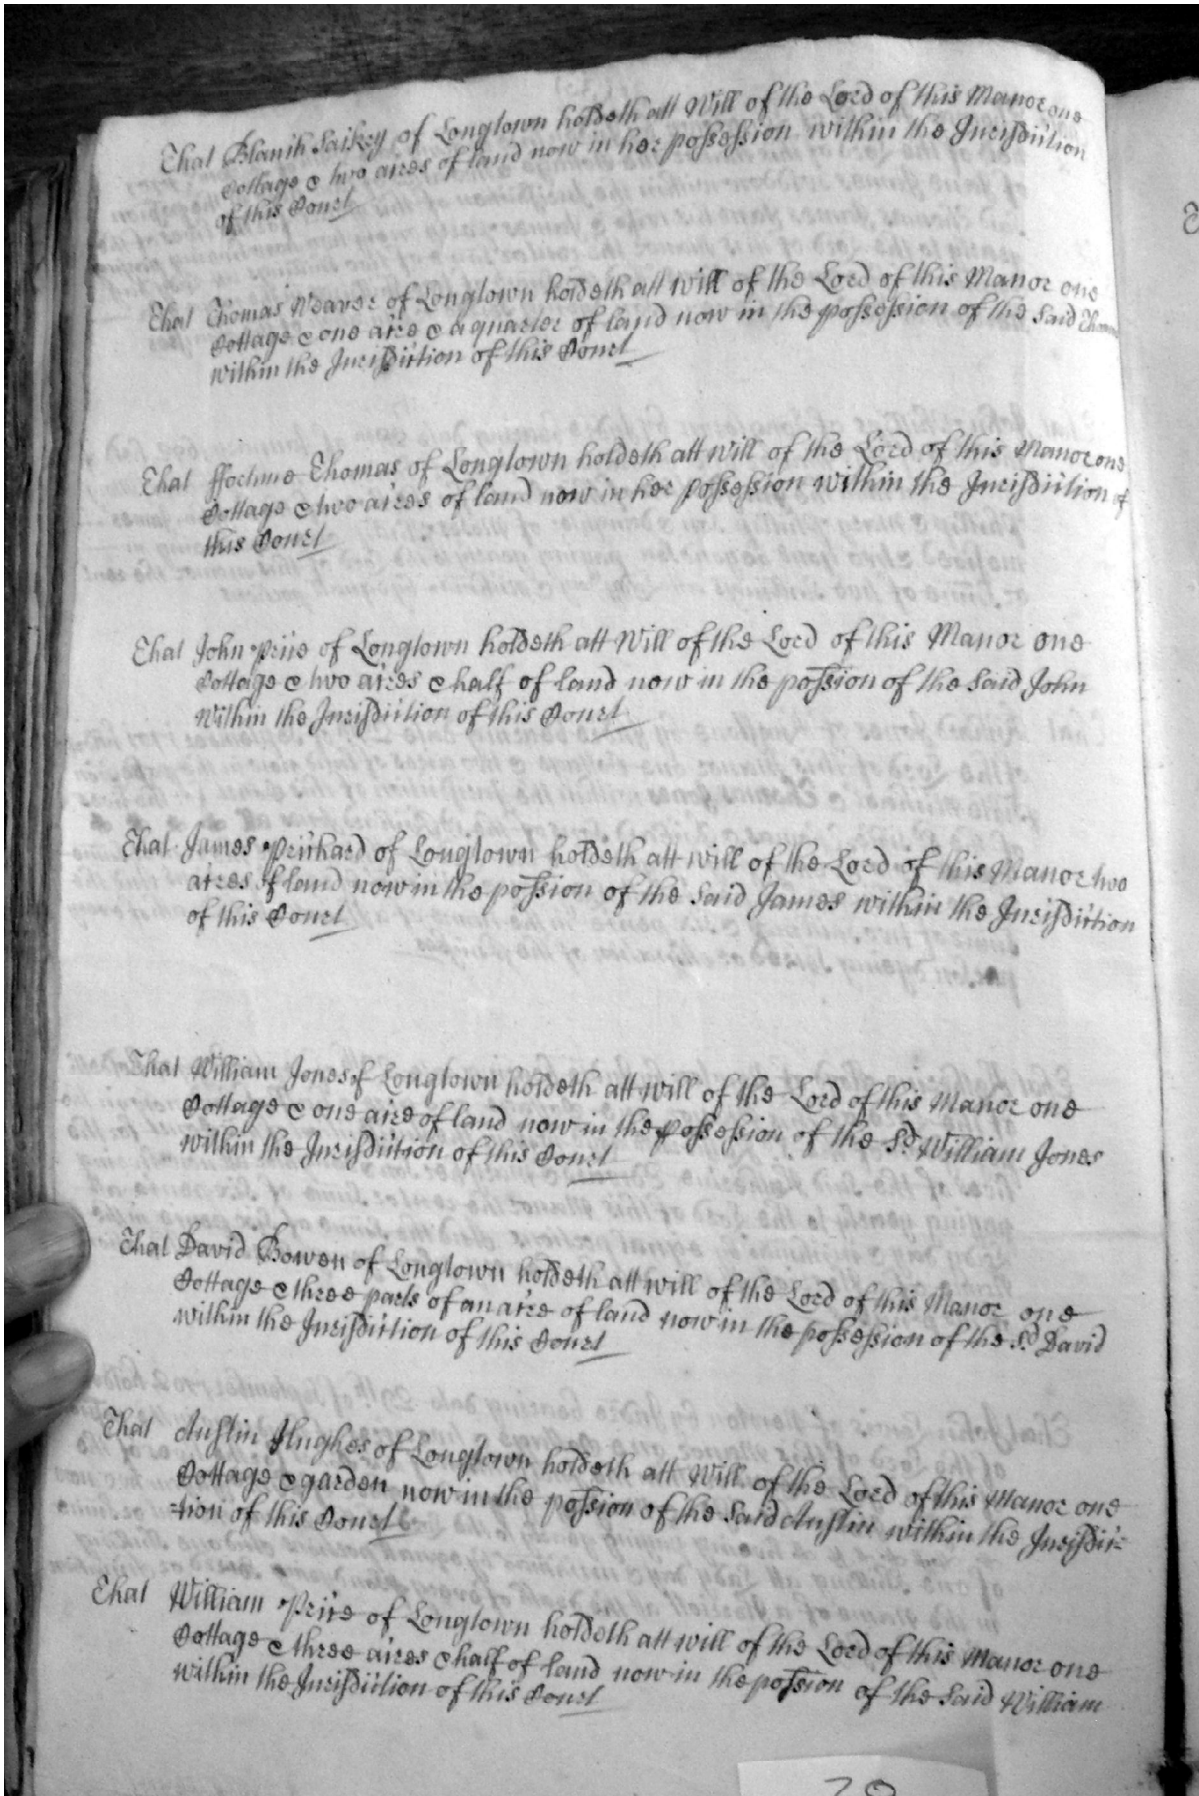 That Blanch Saikey of Longtown holdeth att Will of the Lord of this Manor one
Cottage & two acres of land now in her possession within the Jurisdiction
of this Court
That Thomas Weaver of Longtown holdeth att will of the Lord of this Manor one
Cottage & one acre & a quarter of land now in the possession of the said Thomas
within the Jurisdiction of this Court
That ffortune Thomas of Longtown holdeth att will of the Lord of this Manor one
Cottage & two acres of land now in her possession within the Jurisdiction of
this Court
That John Price of Longtown holdeth att Will of the Lord of this Manor one
Cottage & two acres & half of land now in the possion of the said John
Within the Jurisdiction of this Court
That James Prichard of Longtown holdeth att will of the Lord of this Manor two
acres of land now in the possion of the said James within the Jurisdiction
of this Court
That William Jones of Longtown holdeth att will of the Lord of this Manor one
Cottage & one acre of land now in the possession of the Sd. William Jones
within the Jurisdiction of this Court
That David Bowen of Longtown holdeth att will of the Lord of this Manor one
Cottage & three parts of an acre of land now in the possession of the Sd. David
within the Jurisdiction of this Court
That Austin Hughes of Longtown holdeth att Will of the Lord of this Manor one
Cottage & garden now in the possion of the said Austin within the Jurisdic=
=tion of this Court
That William Price of Longtown holdeth att will of the Lord of this Manor one
Cottage & three acres & half of land now in the possion of the said William
within the Jurisdiction of this Court